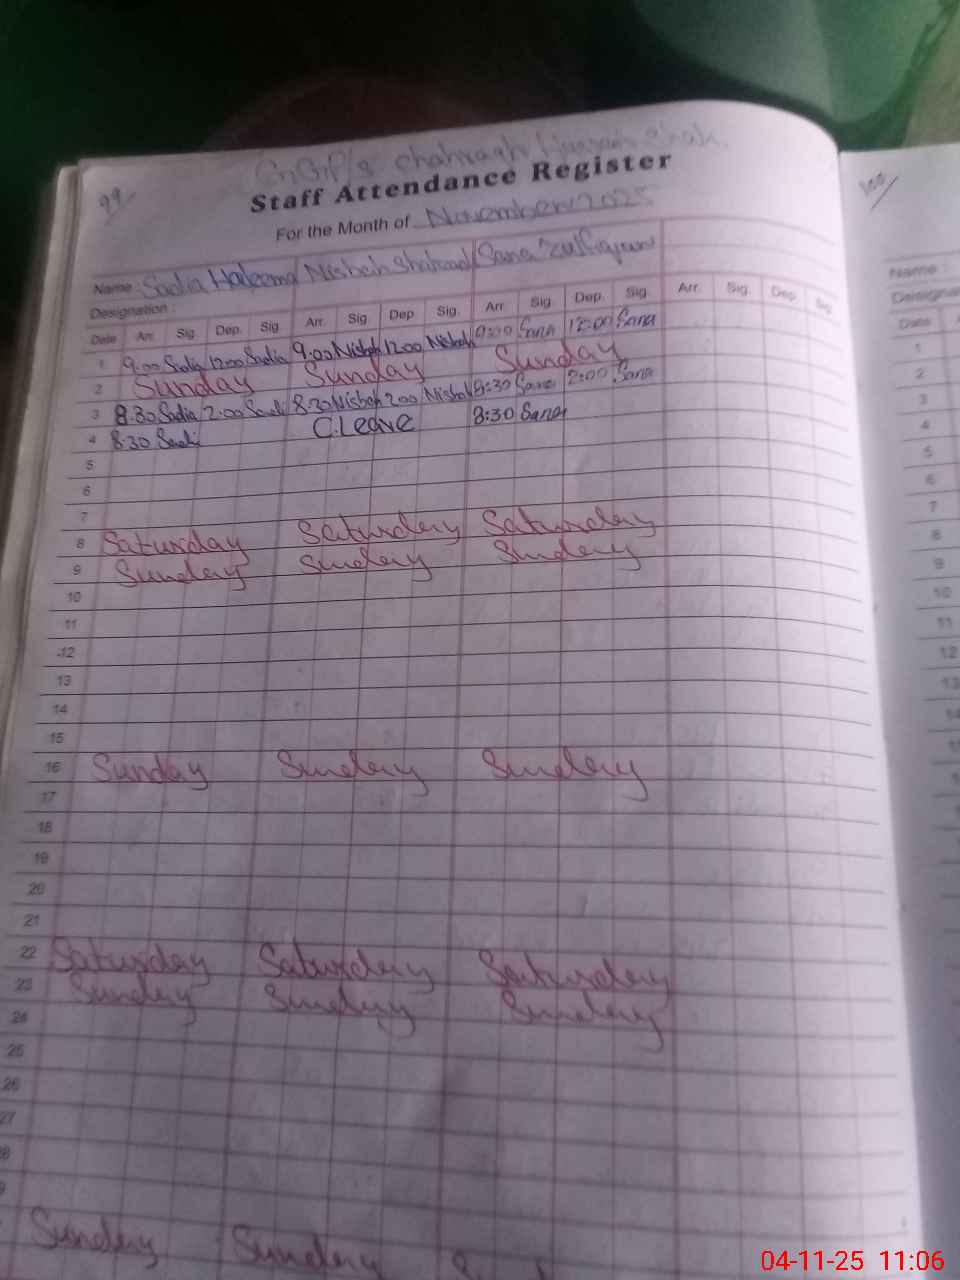 99
GGP/S Chahragh Hassan Shah.
Staff Attendance Register
For the Month of November 2025
Name : Sadia Haleema Nisbah Shahzad Sana Zulfiqar
Designation :
Date Arr. Sig. Dep. Sig. Arr. Sig. Dep. Sig. Arr. Sig. Dep. Sig. Arr. Sig. Dep. Sig.
1 9.00 Sadia 12.00 Sadia 9.00 Nisbah 12.00 Nisbah 9:00 Sana 12:00 Sana
2 Sunday Sunday Sunday
3 8.30 Sadia 2.00 Sadia 8.30 Nisbah 2.00 Nisbah 8:30 Sana 2:00 Sana
4 8.30 Sadia C.Leave 8:30 Sana
5
6
7
8 Saturday Saturday Saturday
9 Sunday Sunday Sunday
10
11
12
13
14
15
16 Sunday Sunday Sunday
17
18
19
20
21
22 Saturday Saturday Saturday
23 Sunday Sunday Sunday
24
25
26
27
8
9
Sunday Sunday
100
Name :
Date
1
2
3
4
5
6
7
8
9
10
11
12
13
14
04-11-25 11:06